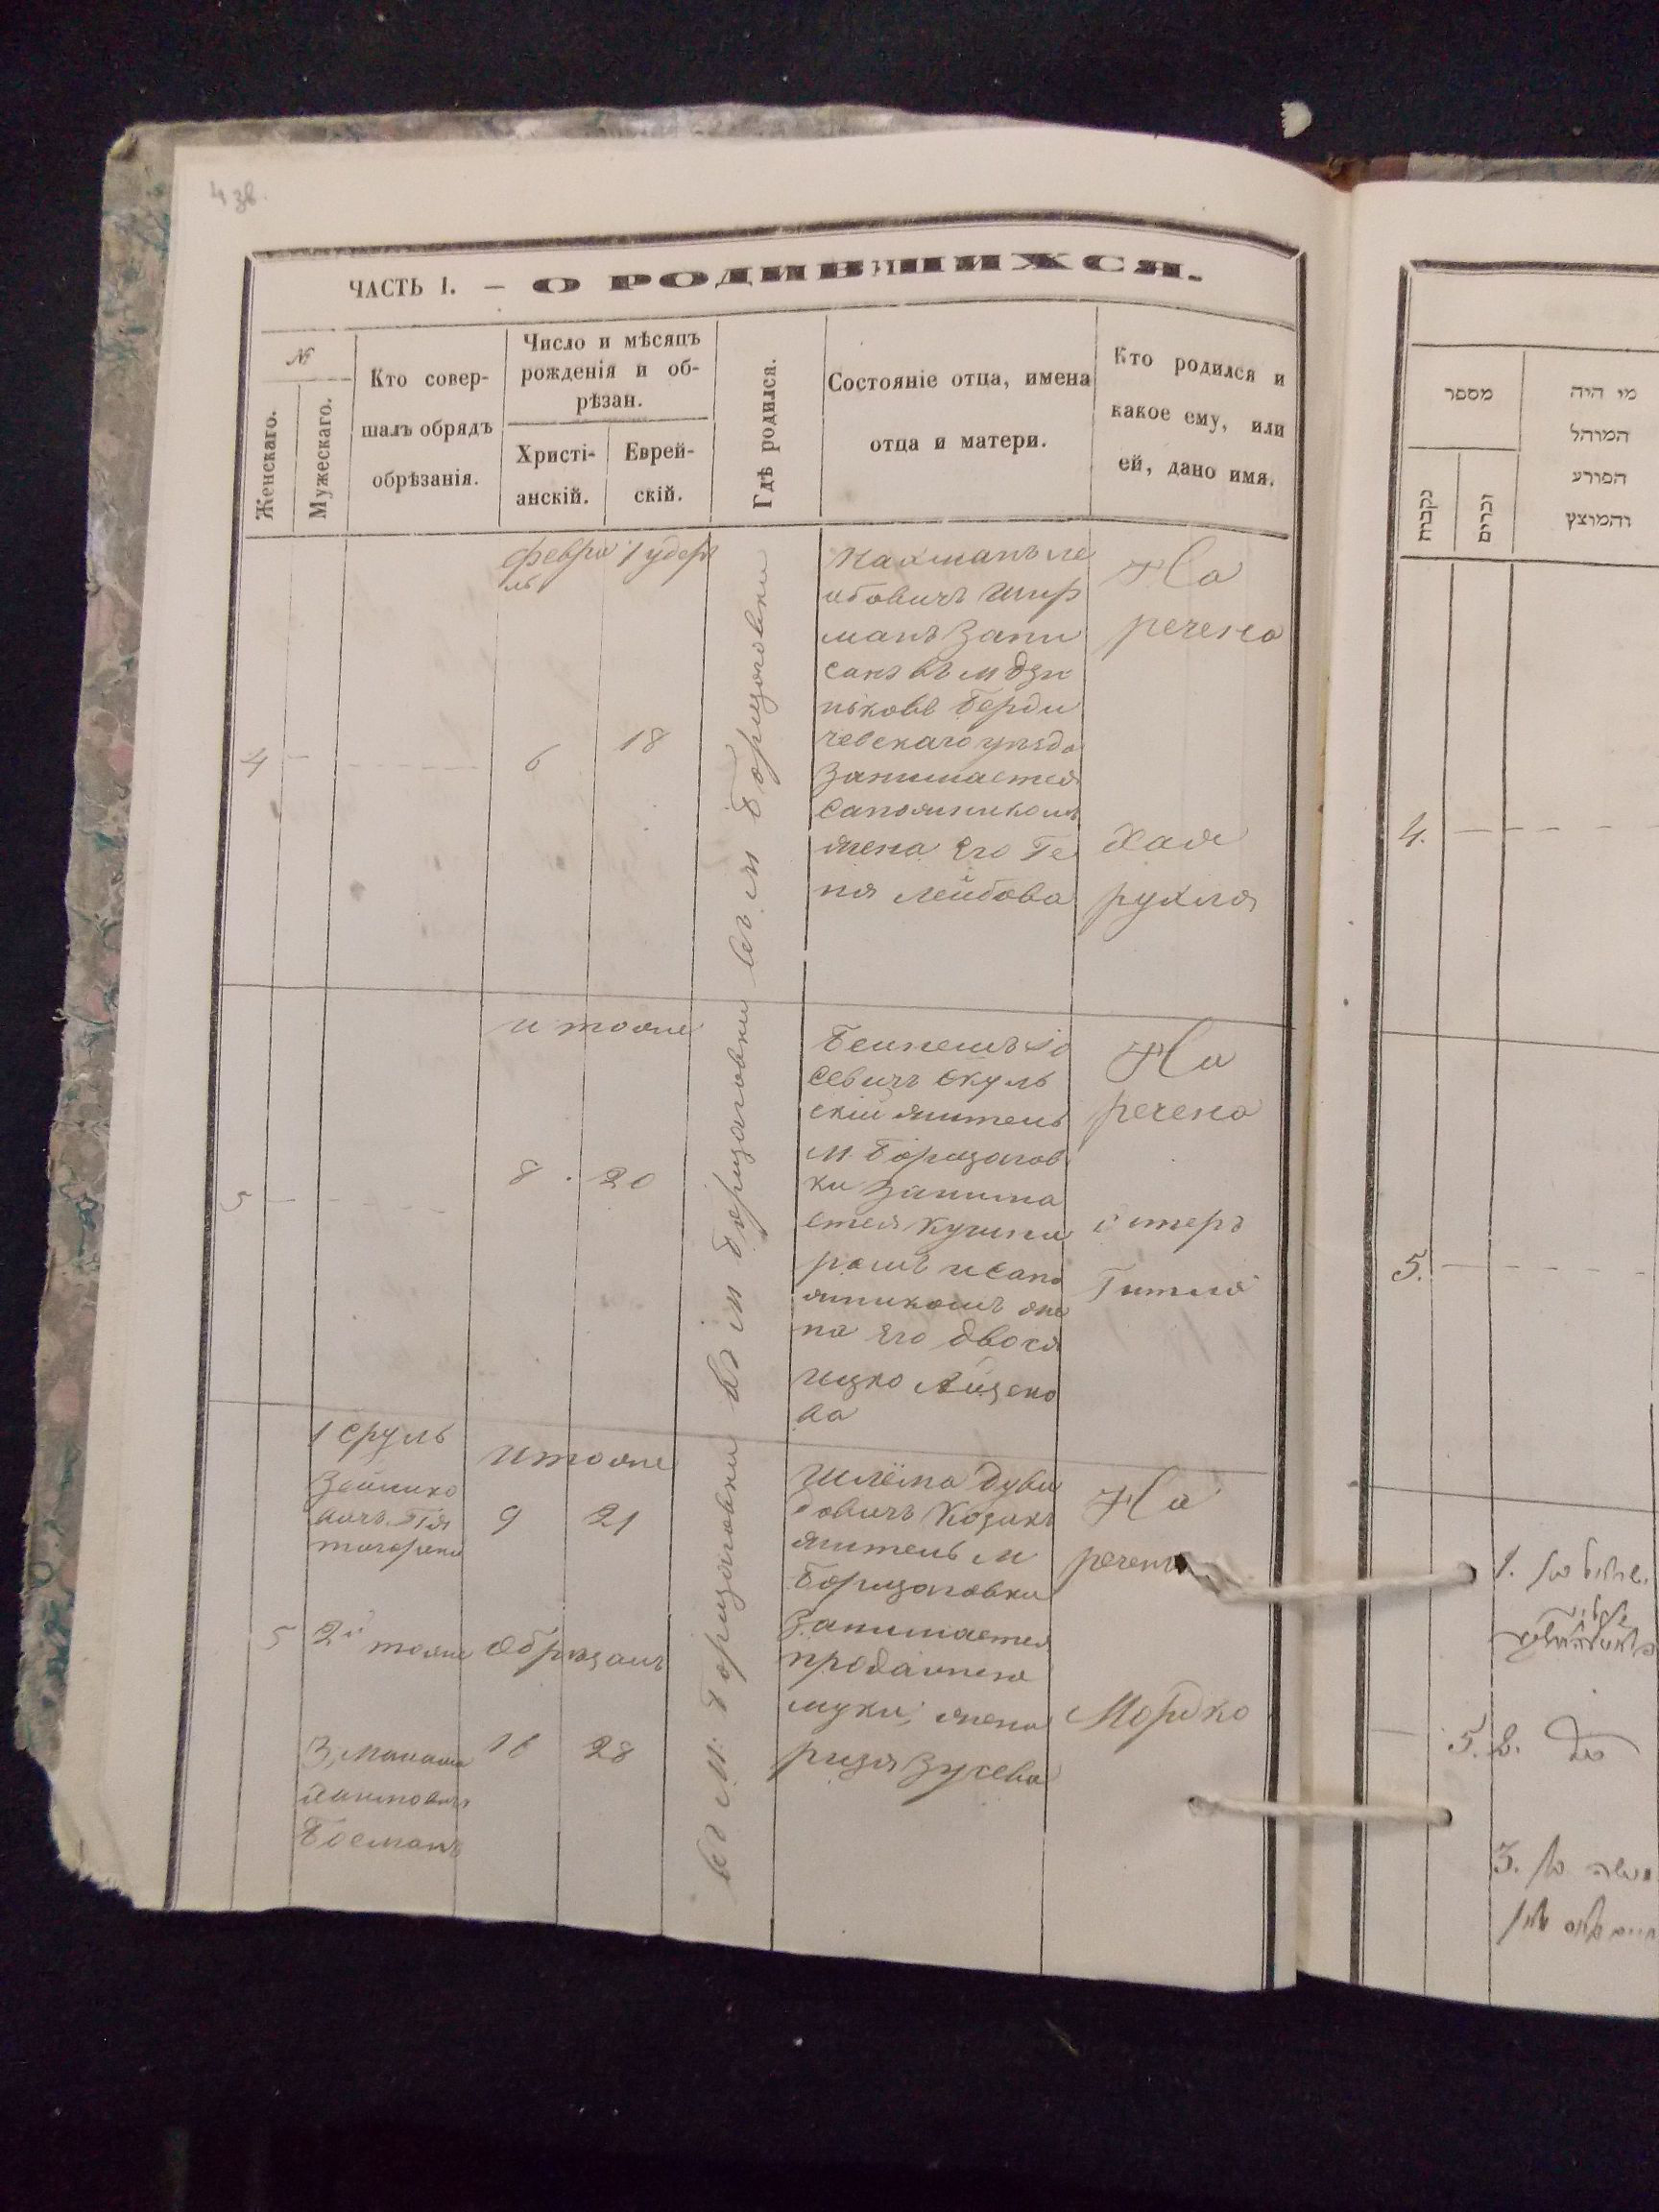 4 зв.
ЧАСТЬ I. — О РОДИВШИХСЯ.
№
Женскаго.
Мужескаго.
Кто совер-
шалъ обрядъ
обрѣзанія.
Число и мѣсяцъ
рожденія и об-
рѣзан.
Христі-
анскій.
Еврей-
скій.
Гдѣ родился.
Состояніе отца, имена
отца и матери.
Кто родился и
какое ему, или
ей, дано имя.
4
Февра
ль
6
1 удеръ
18
въ м Борщаговки
Нахманъ Ле
йбовичъ Шир
манъ Запи
санъ въ м Дзю
ньковѣ Берди
чевскаго уѣзда
Занимается
Сапожникомъ
жена Его Ге
ня Лейбова
На
речена
Хая
рухля
5
и тоже
8 . 20
въ м Борщаговки
Севичъ Скуль
скій житель
м. Борщагов
ки Занима
ется Кушне
ромъ и Сапо
жникомъ же
на Его Двося
Ицко
ва
На
речена
Естеръ
Гитля
5
1 Сруль
Зейлико
вичъ
2й тоже
3, Манаша
Хаимовичъ
и тоже
9 21
Обрѣзанъ
16 28
въ м. Борщаговки
Шлёма Дуви
довичъ Козакъ
житель м
Борщаговки
Занимается
продажею
муки, жена
рися Зусева
На
речено
Мордко
מספר
נקבות
זכרים
מי היה
המוהל
הפורע
והמוצץ
4.
5.
1.
5. 2.
3.